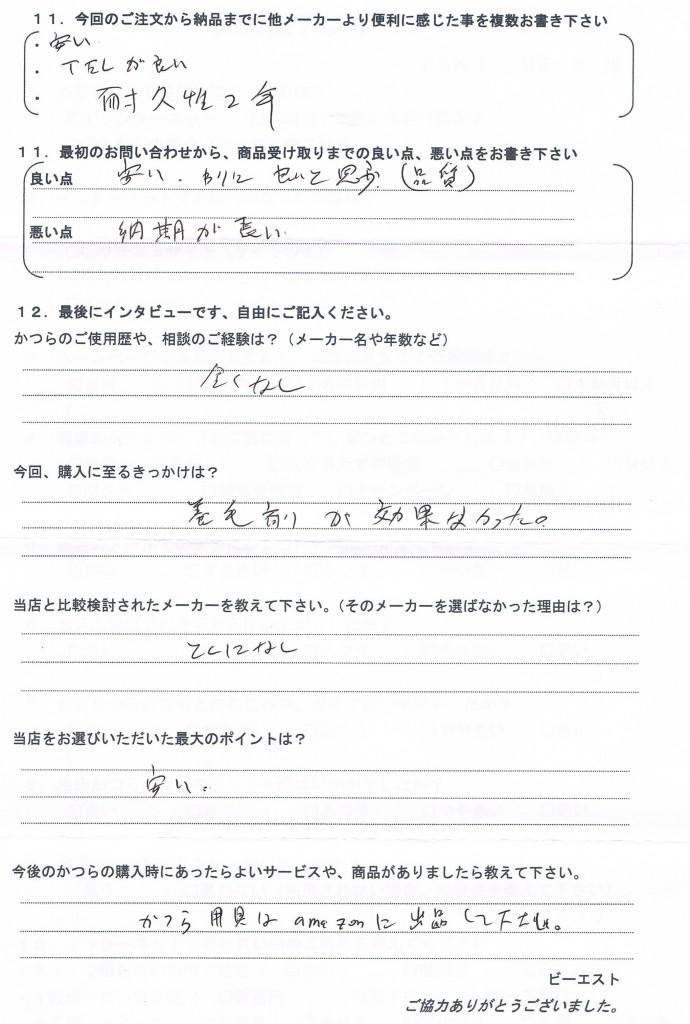 11．今回のご注文から納品までに他メーカーより便利に感じた事を複数お書き下さい
・安い
・TELが良い
・耐久性2年
11．最初のお問い合わせから、商品受け取りまでの良い点、悪い点をお書き下さい
良い点 安い．わりに 良いと思う（品質）
悪い点 納期が長い
12．最後にインタビューです、自由にご記入ください。
かつらのご使用歴や、相談のご経験は？（メーカー名や年数など）
全くなし
今回、購入に至るきっかけは？
養毛剤が効果なかった。
当店と比較検討されたメーカーを教えて下さい。（そのメーカーを選ばなかった理由は？）
とくになし
当店をお選びいただいた最大のポイントは？
安い。
今後のかつらの購入時にあったらよいサービスや、商品がありましたら教えて下さい。
かつら用具はamazonに出品して下さい。
ビーエスト
ご協力ありがとうございました。